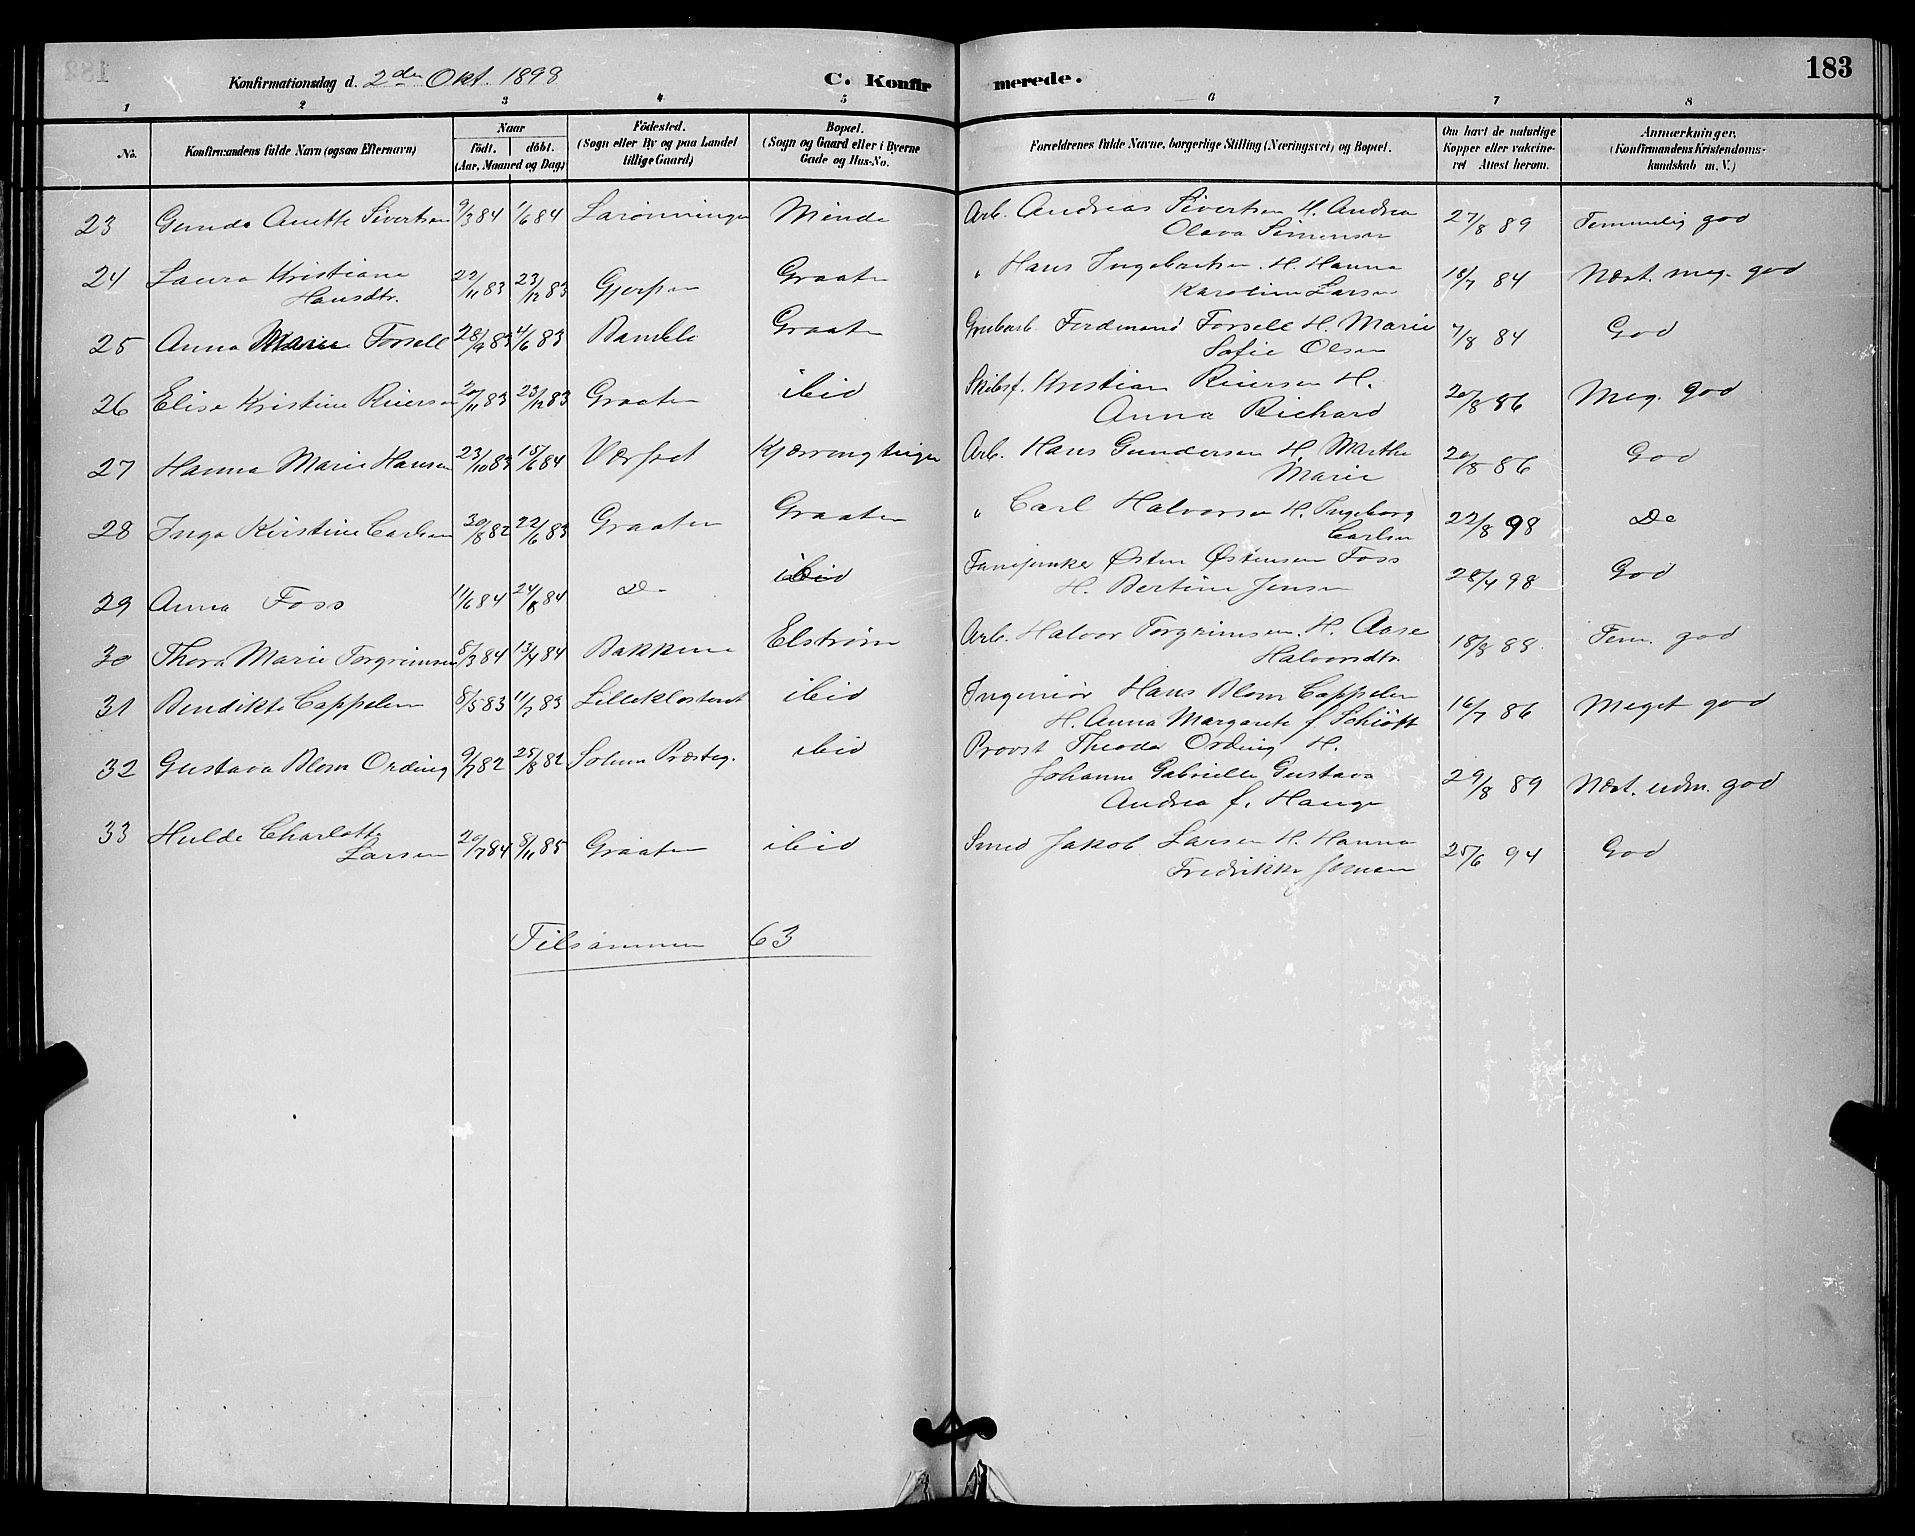 Konfirmationsdag d. 2den Okt. 1898 C. Konfirmerede. 183
1 2 3 4 5 6 7 8
No. Konfirmandens fulde Navn (ogsaa Efternavn) Naar födt. döbt. (Aar, Maaned og Dag) Födested. (Sogn eller By og paa Landet tillige Gaard) Bopæl. (Sogn og Gaard eller i Byerne Gade og Hus-No. Forældrenes fulde Navne, borgerlige Stilling (Næringsvei) og Bopæl. Om havt de naturlige Kopper eller vakcineret Attest herom. Anmærkninger. (Konfirmandens Kristendomskundskab m. V.)
23 Gunda Anette Sivertsen 9/3 84 1/6 84 Larönningen Minde Arb. Andreas Sivertsen H. Andrea
Olava Simensen 27/8 89 Temmelig god
24 Laura Kristiane
Hansdtr. 22/11 83 23/12 83 Gjerpen Graaten " Hans Ingebretsen H. Hanna
Karoline Larsen 18/7 84 Næst. meg. god
25 Anna Marie Forsell 83 4/6 83 Bamble Graaten Grubearb. Ferdinand Forsell H. Marie
Sofie Olsen 7/8 84 God
26 Elise Kristine Riiersen 20/11 83 23/12 83 Graaten ibid Skibsf. Kristian Riiersen H.
Anna Richard 20/8 86 Meg. god
27 Hanna Marie Hansen 23/10 83 15/6 84 Værftet Arb. Hans Gundersen H. Marthe
Marie 20/8 86 God
28 Inga Kristine Carlsen 30/8 82 22/6 83 Graaten Graaten " Carl Halvorsen H. Ingeborg
Carlsen 22/8 98 Do
29 Anna Foss 11/6 84 24/8 84 Do ibid Fanejunker Østen Østensen Foss
H. Bertine Jensen 28/4 98 God
30 Thora Marie Torgrimsen 8/3 84 13/4 84 Bakken Elstrøm Arb. Halvor Torgrimsen H. Aase
Halvorsdtr. 18/8 88 Tem. god
31 Bendikte Cappelen 8/5 83 11/7 83 Lilleklosteret ibid Ingeniör Hans Blom Cappelen
H. Anna Margarete f. Schiøtt 16/7 86 Meget god
32 Gustava Blom Ording 9/7 82 25/8 82 Solum Præsteg. ibid Provst Theodor Ording H.
Johanne Gabrielle Gustava
Andrea f. Hauge 29/8 89 Næst. udm. god
33 Hulda Charlotte
Larsen 20/7 84 8/11 85 Graaten ibid Smed Jakob Larsen H. Hanna
Fredrikke 25/6 94 God
Tilsammen 63